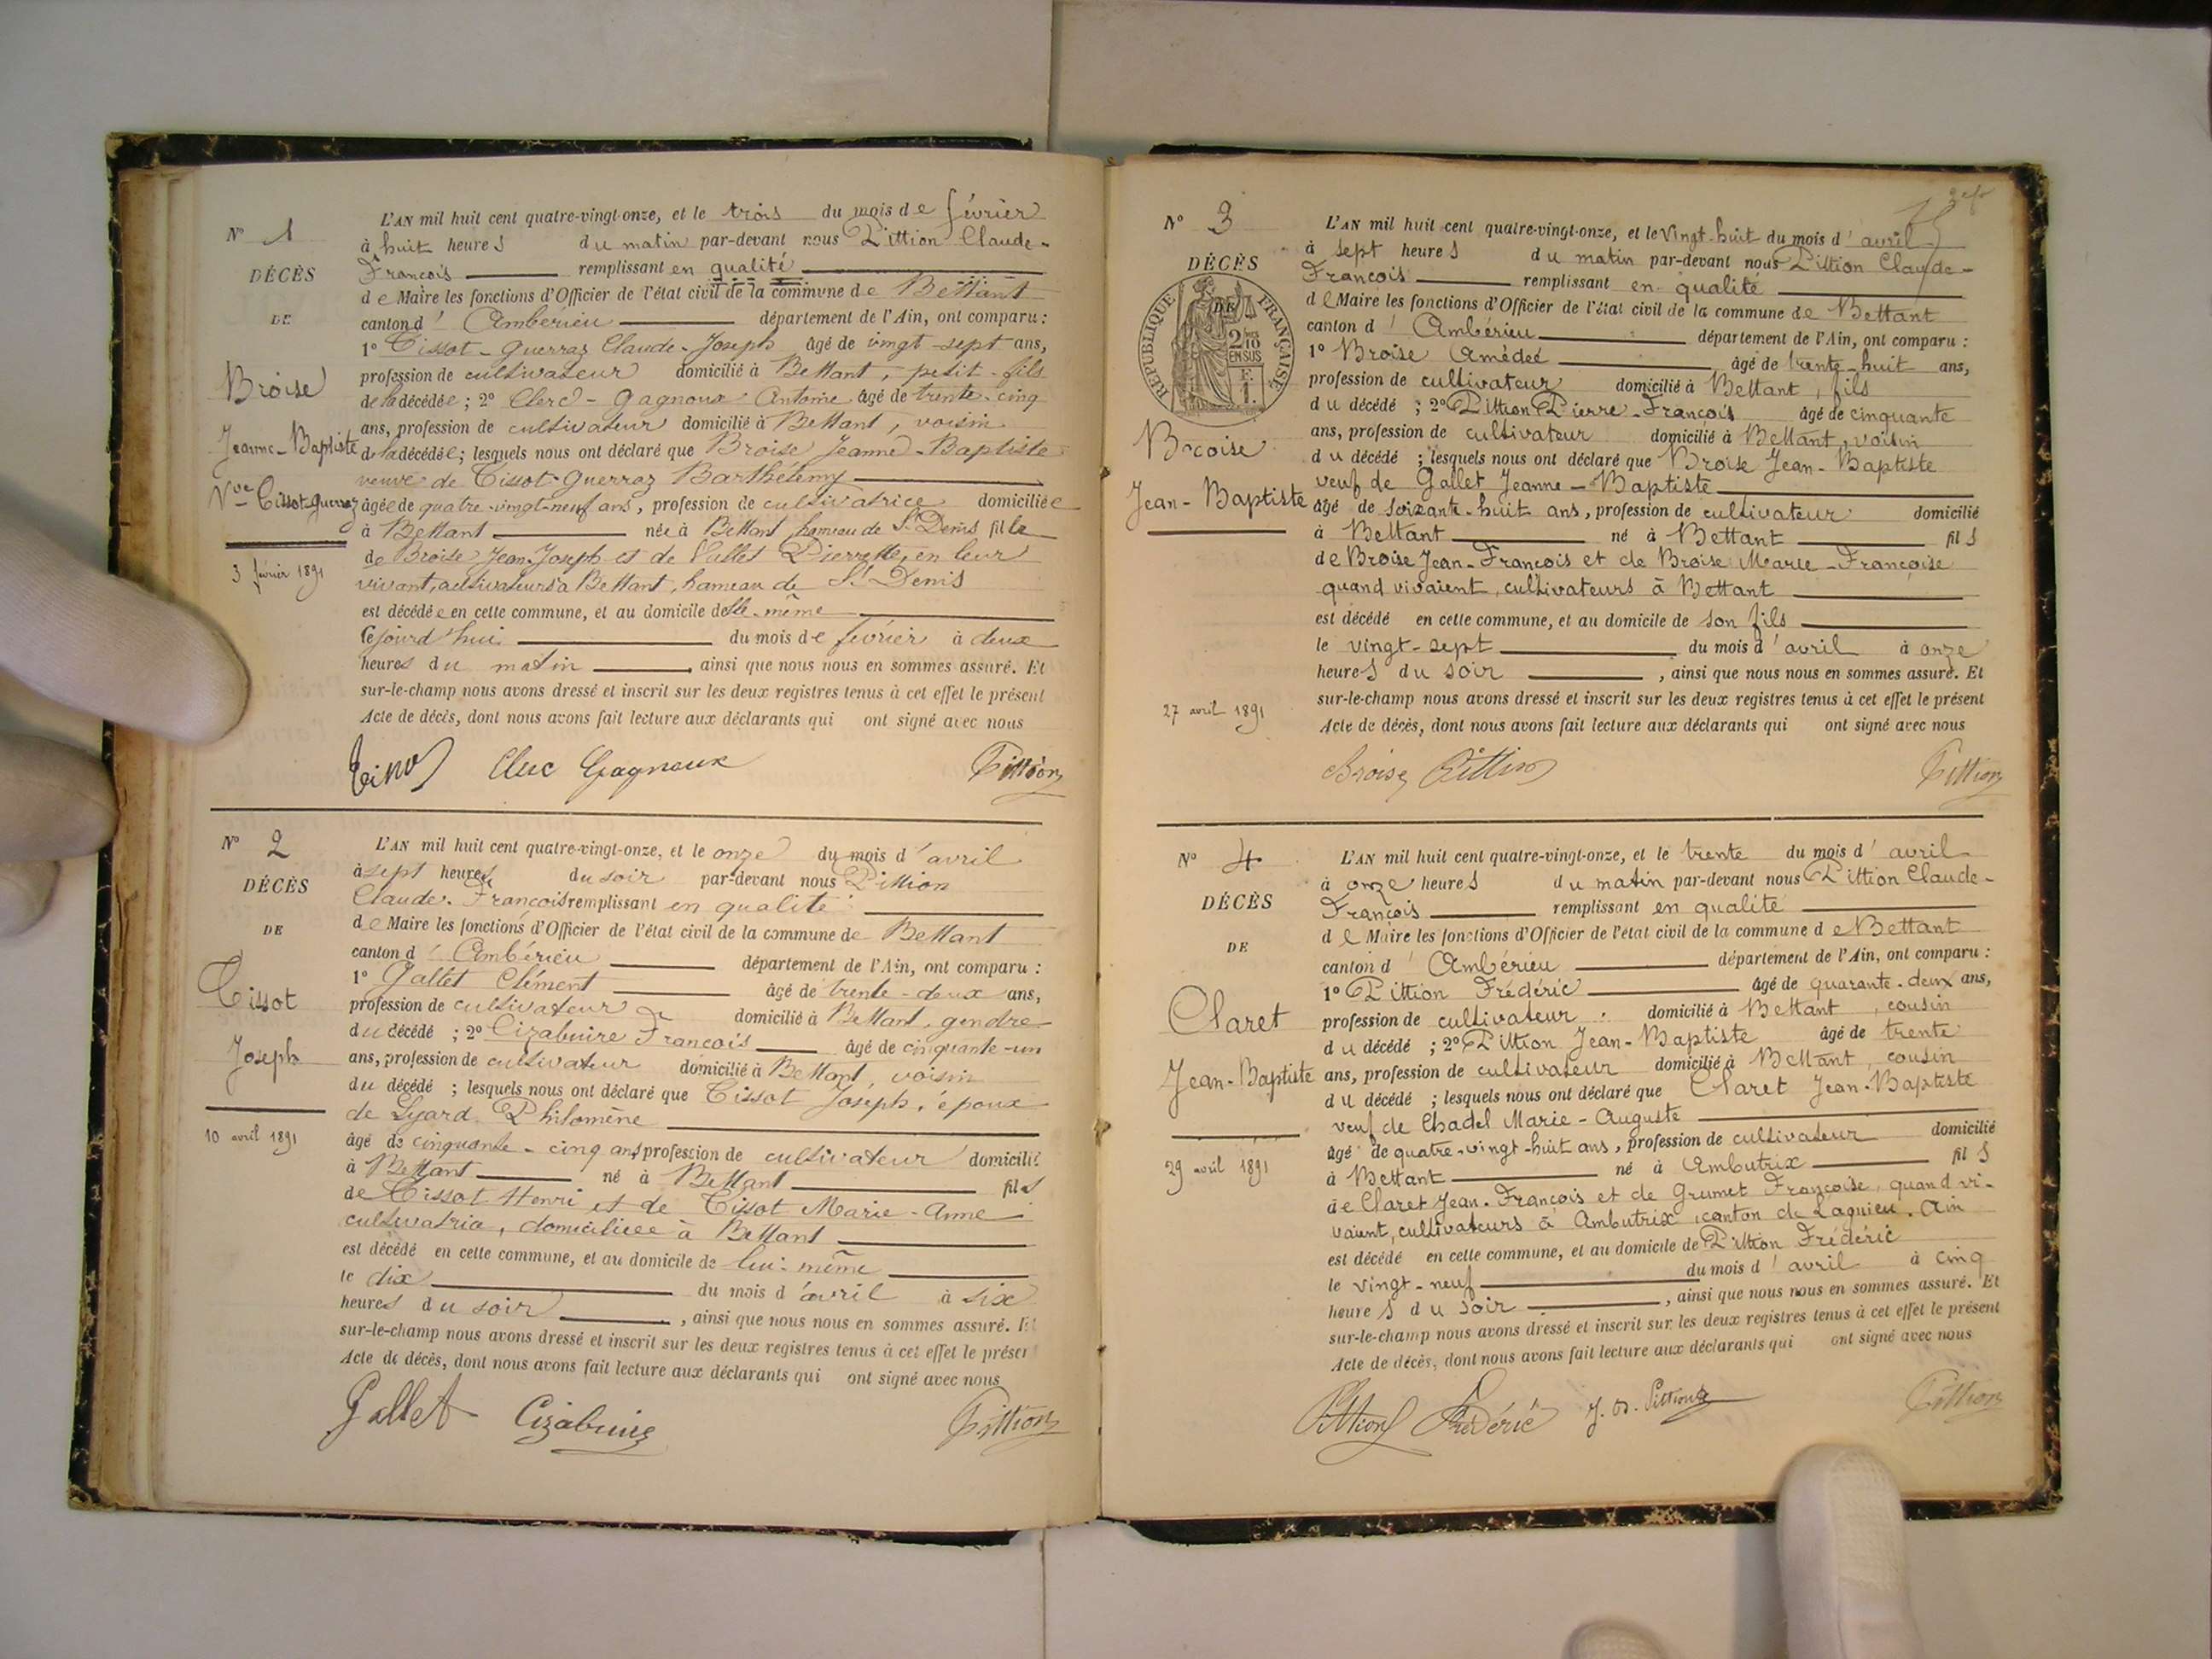 N° 1
DÉCÈS
DE
Broise
Jeanne-Baptiste
Vve Tissot-Guerraz
3 février 1891
L'AN mil huit cent quatre-vingt-onze, et le trois du mois de février
à huit heures du matin par-devant nous Pittion Claude-
François remplissant en qualité
de Maire les fonctions d'Officier de l'état civil de la commune de Bettant
canton d'Ambérieu département de l'Ain, ont comparu :
1° Tissot-Guerraz Claude-Joseph âgé de vingt-sept ans,
profession de cultivateur domicilié à Bettant, petit-fils
de la décédée ; 2° Clerc-Gagnoux Antoine âgé de trente-cinq
ans, profession de cultivateur domicilié à Bettant, voisin
de la décédée ; lesquels nous ont déclaré que Broise Jeanne-Baptiste
veuve de Tissot-Guerraz Barthélemy
âgée de quatre-vingt-neuf ans, profession de cultivatrice domiciliée
à Bettant née à Bettant hameau de St Denis fille
de Broise Jean-Joseph et de Vallet Pierrette, en leur
vivant, cultivateurs à Bettant, hameau de St Denis
est décédée en cette commune, et au domicile d'elle-même
Cejourd'hui du mois de février à deux
heures du matin, ainsi que nous nous en sommes assuré. Et
sur-le-champ nous avons dressé et inscrit sur les deux registres tenus à cet effet le présent
Acte de décès, dont nous avons fait lecture aux déclarants qui ont signé avec nous
Clerc Gagnoux Pittion
N° 2
DÉCÈS
DE
Tissot
Joseph
10 avril 1891
L'AN mil huit cent quatre-vingt-onze, et le onze du mois d'avril
à sept heures du soir par-devant nous Pittion
Claude-François remplissant en qualité
de Maire les fonctions d'Officier de l'état civil de la commune de Bettant
canton d'Ambérieu département de l'Ain, ont comparu :
1° Gallet Clément âgé de trente-deux ans,
profession de cultivateur domicilié à Bettant, gendre
du décédé ; 2° Cizabuire François âgé de cinquante-un
ans, profession de cultivateur domicilié à Bettant, voisin
du décédé ; lesquels nous ont déclaré que Tissot Joseph, époux
de Lyard Philomène
âgé de cinquante-cinq ans profession de cultivateur domicilié
à Bettant né à Bettant fils
de Tissot Henri et de Tissot Marie-Anne
cultivatrice, domiciliée à Bettant
est décédé en cette commune, et au domicile de lui-même
le dix du mois d'avril à six
heures du soir, ainsi que nous nous en sommes assuré. Et
sur-le-champ nous avons dressé et inscrit sur les deux registres tenus à cet effet le présent
Acte de décès, dont nous avons fait lecture aux déclarants qui ont signé avec nous
Gallet Cizabuire Pittion
N° 3
DÉCÈS
DE
RÉPUBLIQUE FRANÇAISE
2/10 EN SUS
F. 1.
Broise
Jean-Baptiste
27 avril 1891
L'AN mil huit cent quatre-vingt-onze, et le vingt-huit du mois d'avril
à sept heures du matin par-devant nous Pittion Claude-
François remplissant en qualité
de Maire les fonctions d'Officier de l'état civil de la commune de Bettant
canton d'Ambérieu département de l'Ain, ont comparu :
1° Broise Amédée âgé de trente-huit ans,
profession de cultivateur domicilié à Bettant, fils
du décédé ; 2° Pittion Pierre-François âgé de cinquante
ans, profession de cultivateur domicilié à Bettant, voisin
du décédé ; lesquels nous ont déclaré que Broise Jean-Baptiste
veuf de Gallet Jeanne-Baptiste
âgé de soixante-huit ans, profession de cultivateur domicilié
à Bettant né à Bettant fils
de Broise Jean-François et de Broise Marie-Françoise
quand vivaient, cultivateurs à Bettant
est décédé en cette commune, et au domicile de son fils
le vingt-sept du mois d'avril à onze
heures du soir, ainsi que nous nous en sommes assuré. Et
sur-le-champ nous avons dressé et inscrit sur les deux registres tenus à cet effet le présent
Acte de décès, dont nous avons fait lecture aux déclarants qui ont signé avec nous
Broise Pittion Pittion
N° 4
DÉCÈS
DE
Claret
Jean-Baptiste
29 avril 1891
L'AN mil huit cent quatre-vingt-onze, et le trente du mois d'avril
à onze heures du matin par-devant nous Pittion Claude-
François remplissant en qualité
de Maire les fonctions d'Officier de l'état civil de la commune de Bettant
canton d'Ambérieu département de l'Ain, ont comparu :
1° Pittion Frédéric âgé de quarante-deux ans,
profession de cultivateur domicilié à Bettant, cousin
du décédé ; 2° Pittion Jean-Baptiste âgé de trente
ans, profession de cultivateur domicilié à Bettant, cousin
du décédé ; lesquels nous ont déclaré que Claret Jean-Baptiste
veuf de Chadel Marie-Auguste
âgé de quatre-vingt-huit ans, profession de cultivateur domicilié
à Bettant né à Ambutrix fils
de Claret Jean-François et de Grumet Françoise, quand vi-
vaient, cultivateurs à Ambutrix, canton de Lagnieu. Ain
est décédé en cette commune, et au domicile de Pittion Frédéric
le vingt-neuf du mois d'avril à cinq
heures du soir, ainsi que nous nous en sommes assuré. Et
sur-le-champ nous avons dressé et inscrit sur les deux registres tenus à cet effet le présent
Acte de décès, dont nous avons fait lecture aux déclarants qui ont signé avec nous
Pittion Frédéric J. B. Pittion Pittion